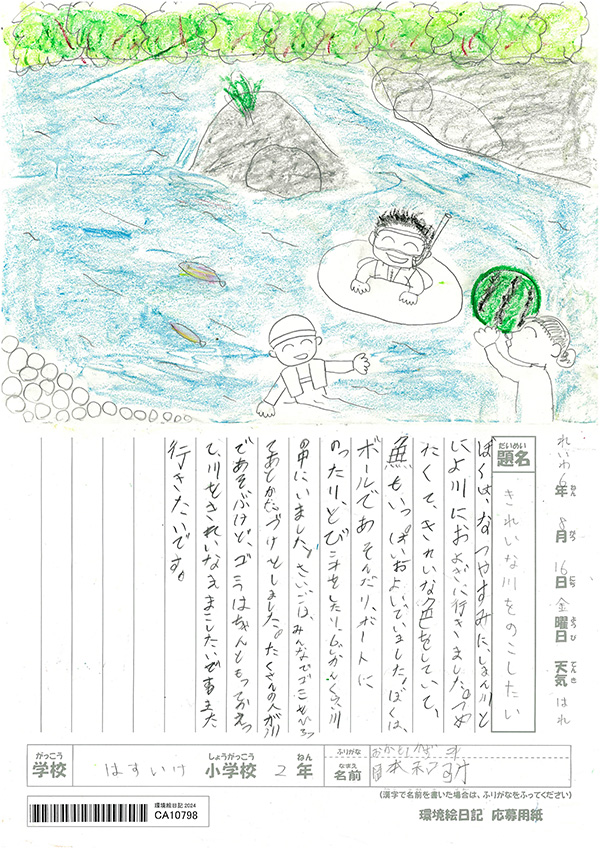 れいわ6年ねん 8月がつ 16日にち 金曜日ようび 天気てんき はれ
題名だいめい きれいな川をのこしたい
ぼくは、なつやすみに、しょ川と
によ川におよぎに行きました。つめ
たくて、きれいな色をしていて、
魚もいっぱいおよいでいました!ぼくは、
ボールであそんだり、ボートに
のったり、とびこみをしたり、じかんくらい川
の中にいました。さいごは、みんなでゴミをひろっ
てあとかたづけをしました。たくさんの人が川
であそぶけど、ゴミはちゃんともってかえっ
て、川をきれいなままにしたいです。また
行きたいです。
学校がっこう はすいけ 小学校しょうがっこう 2年ねん
ふりがな
名前なまえ
(漢字で名前を書いた場合は、ふりがなをふってください)
環境絵日記 2024
CA10798
環境絵日記 応募用紙